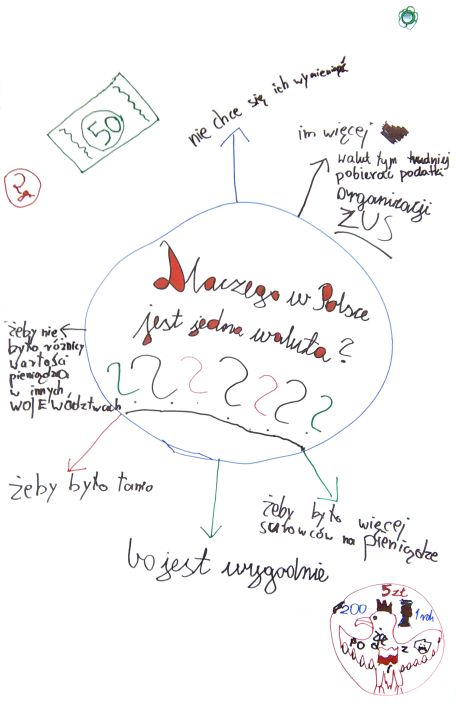 50
nie chce się ich wymieniać
im więcej
walut tym trudniej
pobierać podatki
organizacji
ZUS
Dlaczego w Polsce
jest jedna waluta?
żeby nie
było różnicy
wartości
pieniądza
w innych
WOJEWództwach
żeby było tanio
żeby było więcej
surowców na pieniądze
bo jest wygodnie
5 zł
200